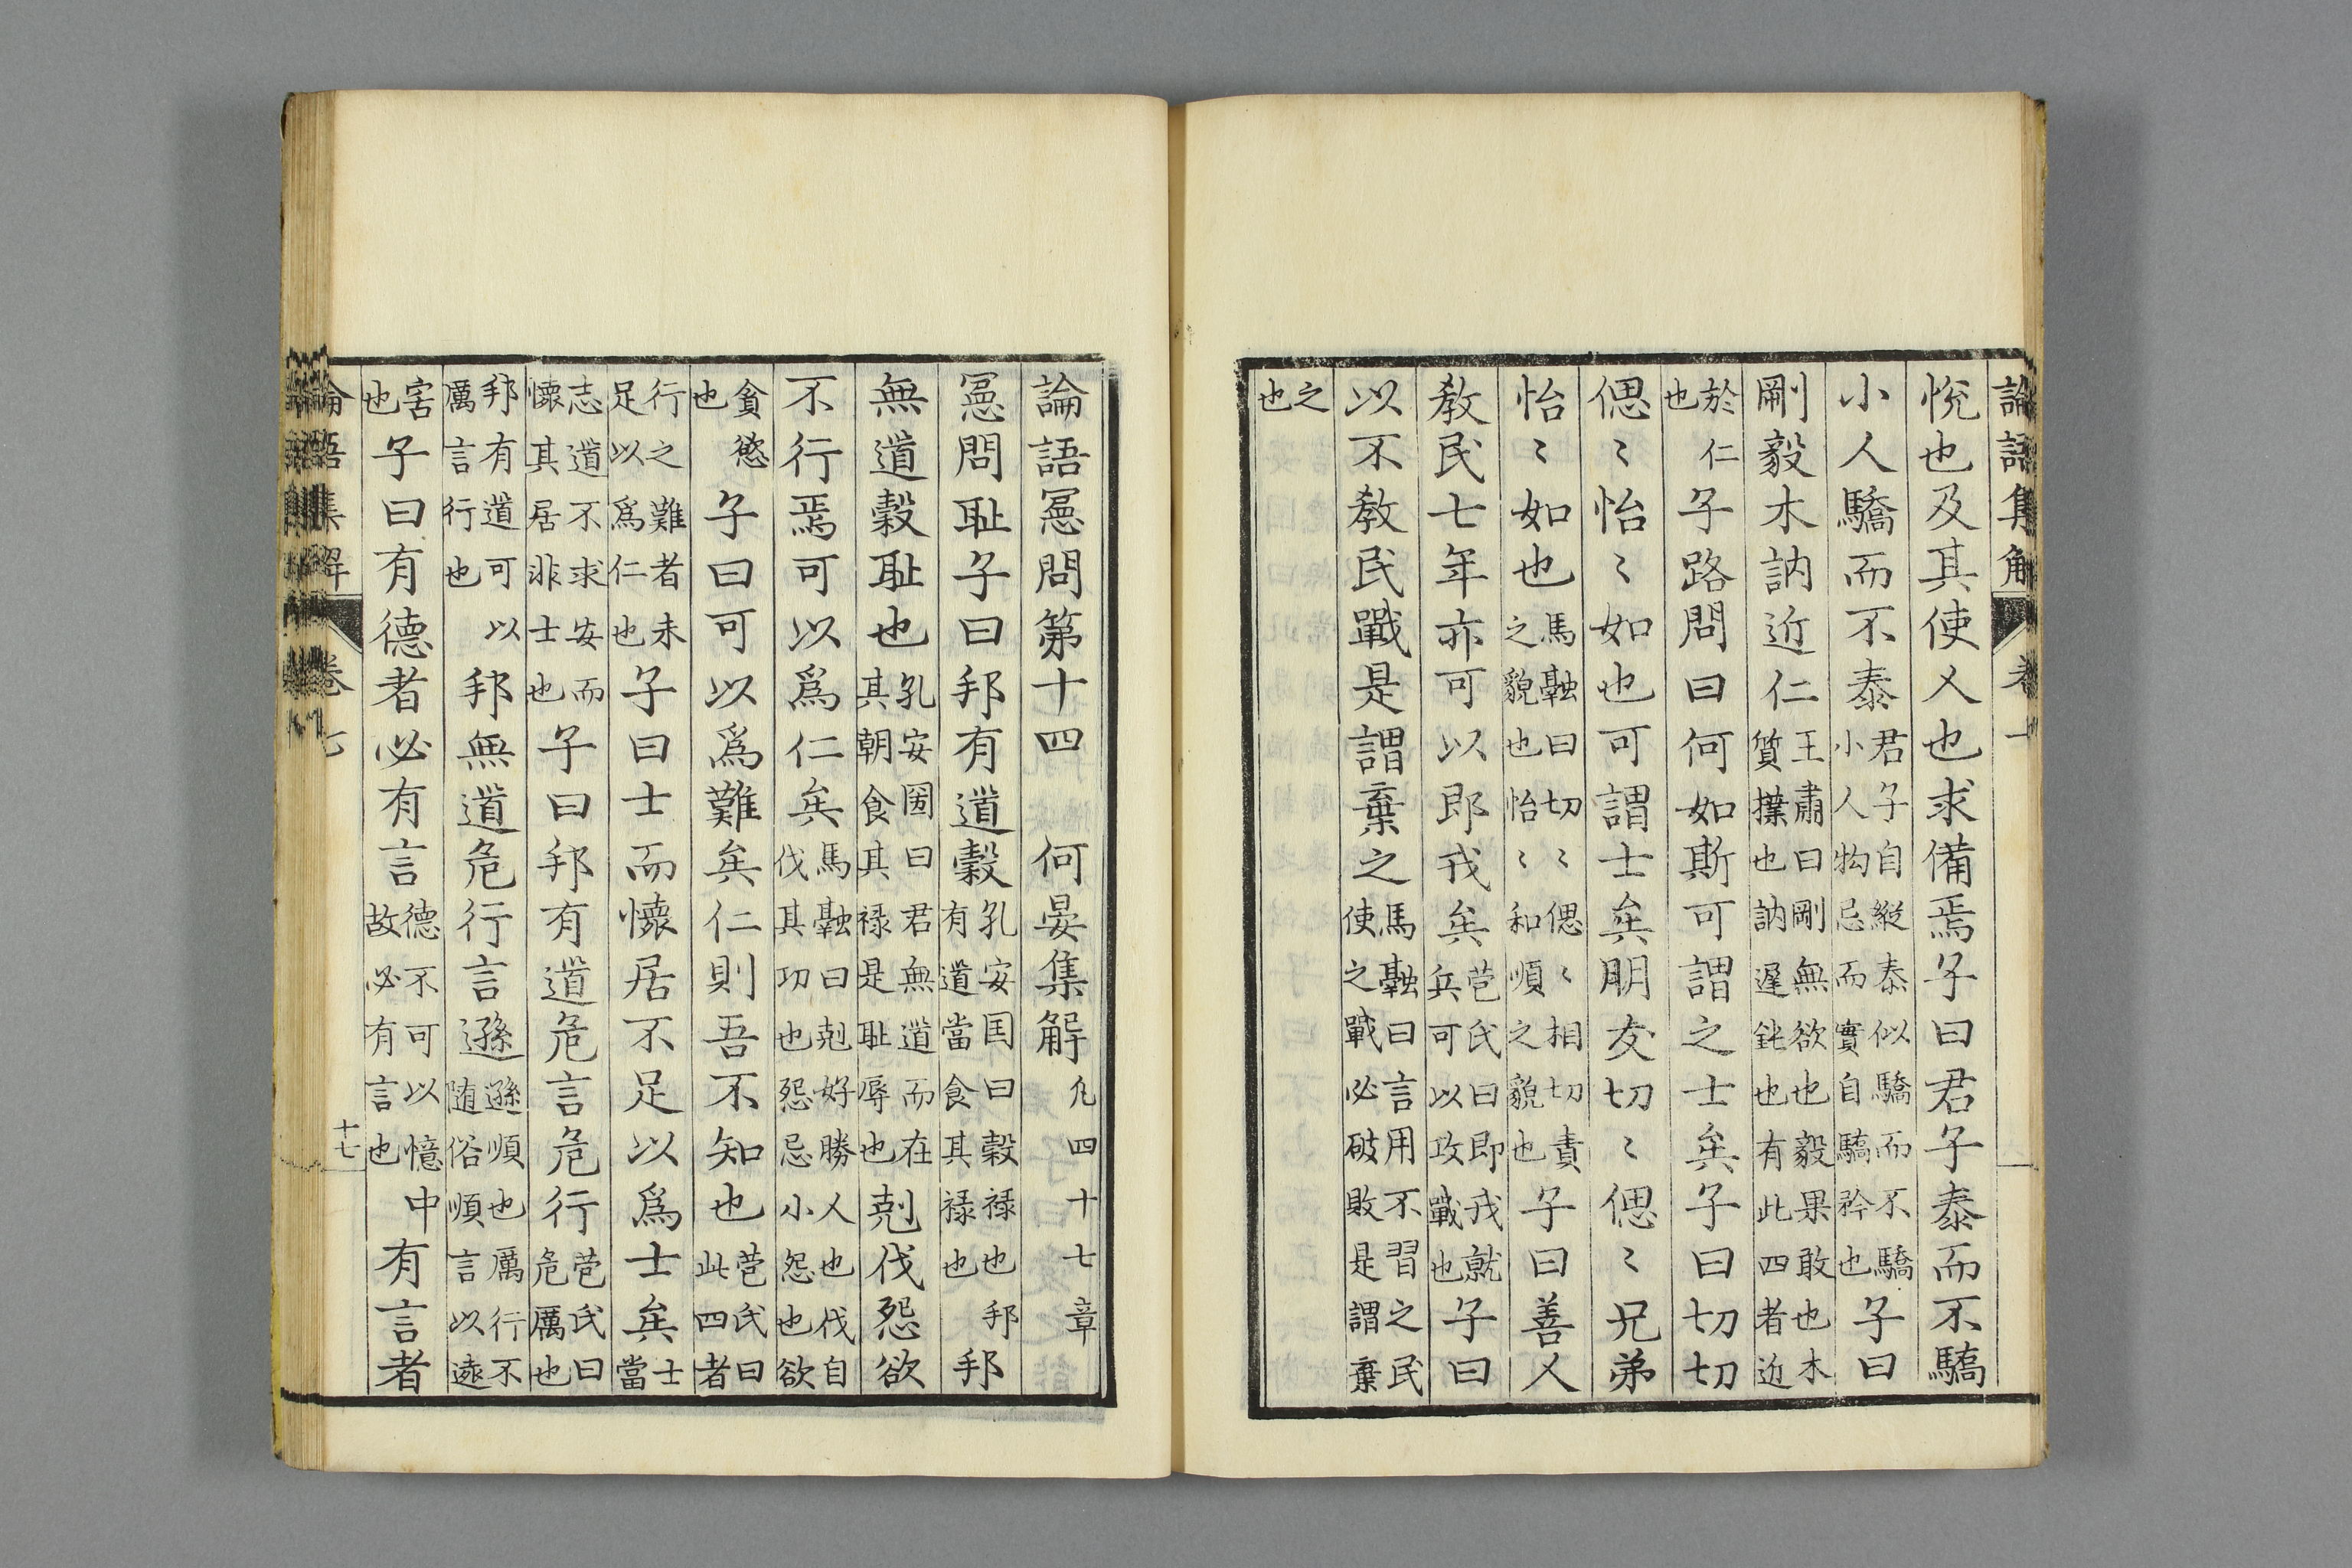 論語集解 卷
悅也及其使人也求備焉子曰君子泰而不驕
小人驕而不泰君子自縱泰似驕而不驕小人拘忌而實自驕矜也子曰
剛毅木訥近仁王肅曰剛無欲也毅果敢也木質撲也訥遲鈍也有此四者近
於仁也子路問曰何如斯可謂之士矣子曰切切
偲〻怡〻如也可謂士矣朋友切〻偲〻兄弟
怡〻如也馬融曰切〻偲〻相切責之貌也怡〻和順之貌也子曰善人
教民七年亦可以即戎矣苞氏曰即戎就兵可以攻戰也子曰
以不教民戰是謂棄之馬融曰言用不習之民使之戰必破敗是謂棄
之也
論語憲問第十四 何晏集解凡四十七章
憲問耻子曰邦有道穀孔安国曰穀禄也邦有道當食其禄也邦
無道穀耻也孔安圀曰君無道而在其朝食其禄是耻辱也剋伐怨欲
不行焉可以爲仁矣馬融曰剋好勝人也伐自伐其功也怨忌小怨也欲
貪慾也子曰可以爲難矣仁則吾不知也苞氏曰此四者
行之難者未足以爲仁也子曰士而懷居不足以爲士矣士當
志道不求安而懷其居非士也子曰邦有道危言危行苞氏曰危厲也
邦有道可以厲言行也邦無道危行言遜遜順也厲行不随俗順言以遠
害也子曰有德者必有言德不可以憶中故必有言也有言者
論語集解 卷七 十七